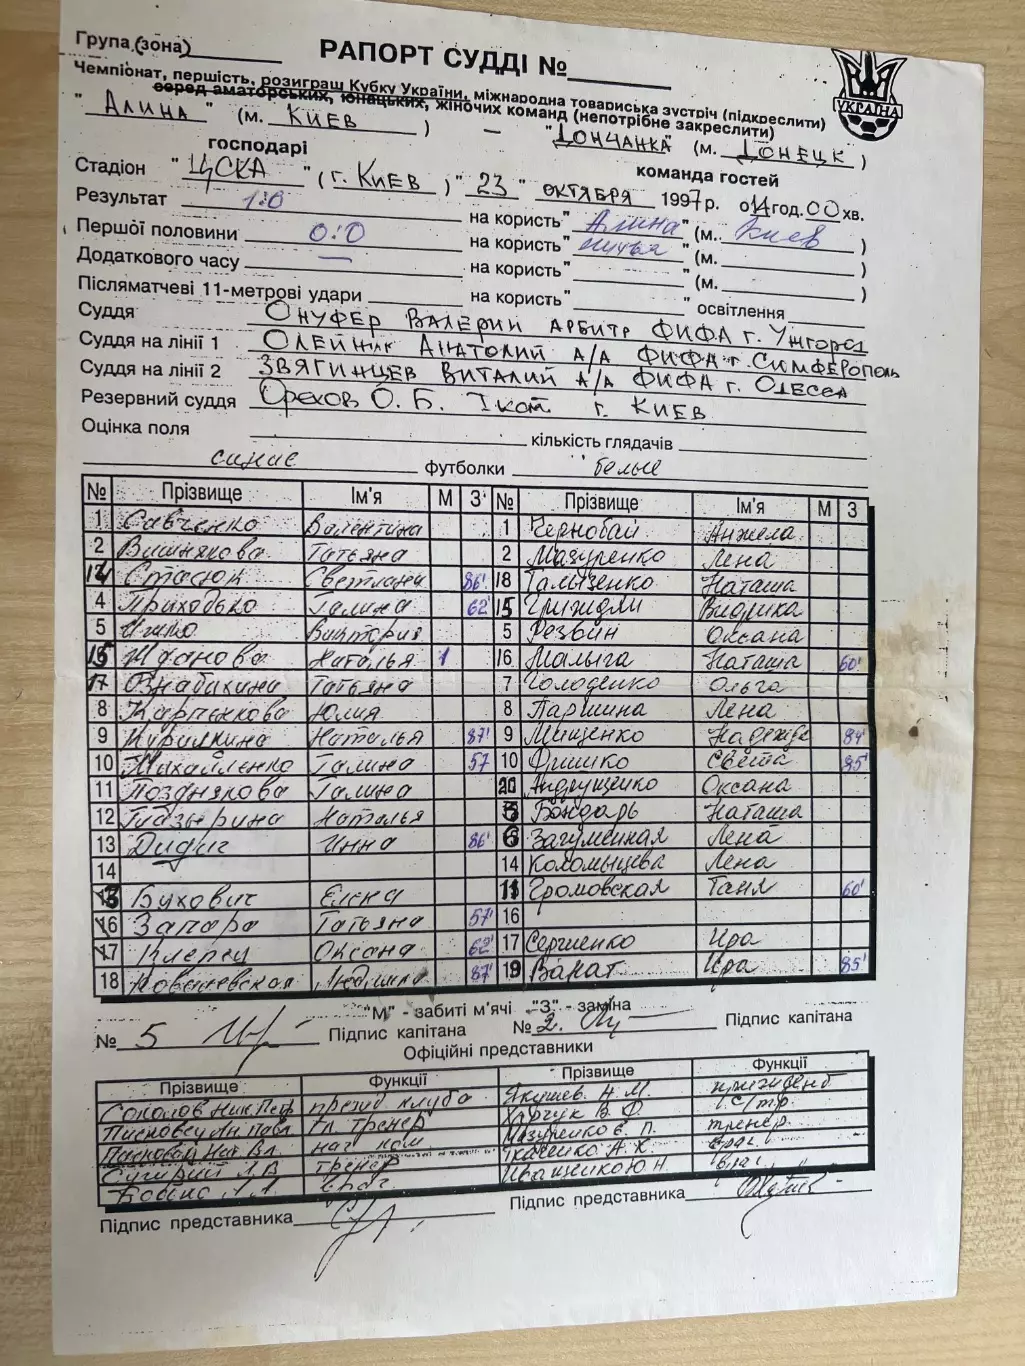 Група (зона)
РАПОРТ СУДДІ №
Чемпіонат, першість, розиграш Кубку України, міжнародна товариська зустріч (підкреслити)
серед аматорських, юнацьких, жіночих команд (непотрібне закреслити)
УКРАЇНА
"АЛИНА" (м. КИЕВ) – "ДОНЧАНКА" (м. ДОНЕЦК)
господарі команда гостей
Стадіон "ЦСКА" (г. КИЕВ) "23" ОКТЯБРЯ 1997р. о14год.00хв.
Результат 1:0 на користь "Алина" (м. Киев)
Першої половини 0:0 на користь" ничья " (м. )
Додаткового часу — на користь" " (м. )
Післяматчеві 11-метрові удари на користь" " освітлення
Суддя ОНУФЕР ВАЛЕРИЙ АРБИТР ФИФА г. Ужгород
Суддя на лінії 1 ОЛЕЙНИК АНАТОЛИЙ А/А ФИФА г. СИМФЕРОПОЛЬ
Суддя на лінії 2 ЗВЯГИНЦЕВ ВИТАЛИЙ А/А ФИФА г. ОДЕССА
Резервний суддя Орехов О. Б. I кат. г. КИЕВ
Оцінка поля кількість глядачів
синие футболки белые
№ Прізвище Ім'я М З № Прізвище Ім'я М З
1 Савченко Валентина 1 Чернобай Анжела
2 Вишнякова Татьяна 2 Мазуренко Лена
Стасюк Светлана 86' 18 Наташа
4 Приходько Галина 62' 15
5 Виктория 5 Резвин Оксана
15 Жданова Наталья 1 16 Малыга Наташа 60'
17 Татьяна 7 Голоденко Ольга
8 Юлия 8 Паршина Лена
9 Наталья 87' 9 Мищенко Надежда 84'
10 Михайленко Галина 57 10 Фишко Света 85'
11 Позднякова Галина 20 Андрущенко Оксана
12 Наталья Бондарь Наташа
13 Дидиг Инна 86' 6 Загуменная Лена
14 14 Коломыцева Лена
Бухович Елена 11 Громовская Таня 60'
16 Запара Татьяна 57' 16
17 Клепец Оксана 62' 17 Сергиенко Ира
18 Людмила 87' 19 Ванат Ира 85'
"М" - забиті м'ячі "З" - заміна
№ 5 Підпис капітана № 2. Підпис капітана
Офіційні представники
Прізвище Функції Прізвище Функції
Соколов Ник. презид клуба Якушев Н. М. президент
гл тренер Харчук В. Ф.
нач ком Мазуренко Е. П. тренер
тренер Ткаченко А. К. врач
врач Иващенко Ю Н.
Підпис представника Підпис представника